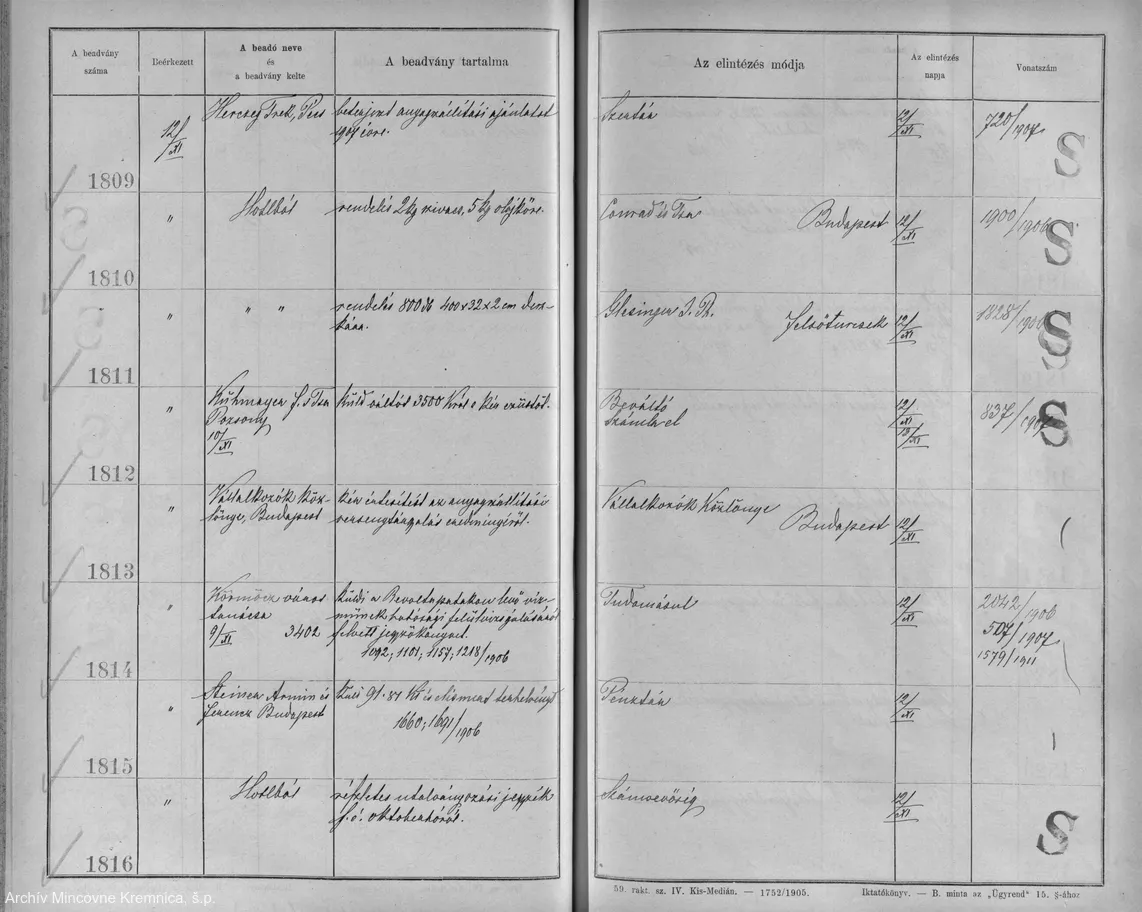 A beadvány
száma
Beérkezett
A beadó neve
és
a beadvány kelte
A beadvány tartalma
Az elintézés módja
Az elintézés
napja
Vonatszám
1809
12/XI
Herczeg Frek, Pécs
beterjeszt anyagszállítási ajánlatot
1907 évre.
12/XI
720/1907
S
1810
"
Hotlból
rendelés 2 kg 5 kg
Conrad és Tsa
Budapest
12/XI
1900/1906
S
1811
"
" "
rendelés 800 db 400×32×2 cm desz-
kára.
Glesinger J. Ph.
Felsőturcsek
12/XI
1828/1906
S
1812
"
Kühmayer F. s Tsa
Pozsony
10/XI
küld váltót 3500 Król s kér ezüstöt.
Beváltó
Számla el
12/XI
13/XI
837/1907
S
1813
"
Vállalkozók Köz-
lönye, Budapest
kér értesítést az anyagszállítási
versenytárgyalás eredményéről.
Vállalkozók Közlönye
Budapest
12/XI
1814
"
Körmöcz város
tanácsa
9/XI 3402
küldi a levő víz-
művek hatósági felülvizsgálásáról
felvett jegyzőkönyvet.
1092; 1101; 1157; 1218/1906
Tudomásul
12/XI
2042/1906
507/1907
1579/1911
1815
"
Steiner Armin és
Ferencz Budapest
91·81 K és elismert
1660; 1691/1906
Pénztár
12/XI
1816
"
Hotlból
részletes utalványozási jegyzék
f. é. oktoberhóról.
Számvevőség
12/XI
S
59. rakt. sz. IV. Kis-Medián. — 1752/1905.
Iktatókönyv. — B. minta az „Ügyrend" 15. §-ához
Archív Mincovne Kremnica, š.p.